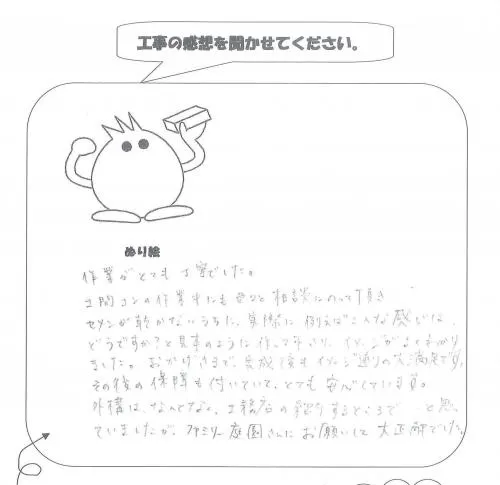 工事の感想を聞かせてください。
ぬり絵
作業がとても丁寧でした。
土間コンの作業中にも色々と相談にのって頂き
セメンが乾かないうちに、実際に例えばこんな感じは、
どうですか?と見本のように作って下さり、イメージがよくわかり
ました。おかげさまで、完成後もイメージ通りの大満足です。
その後の保障も付いていて、とても安心しています。
外構は、なんとなく、工務店の するところで…と思っ
ていましたが、ファミリー庭園さんにお願いして大正解でした。